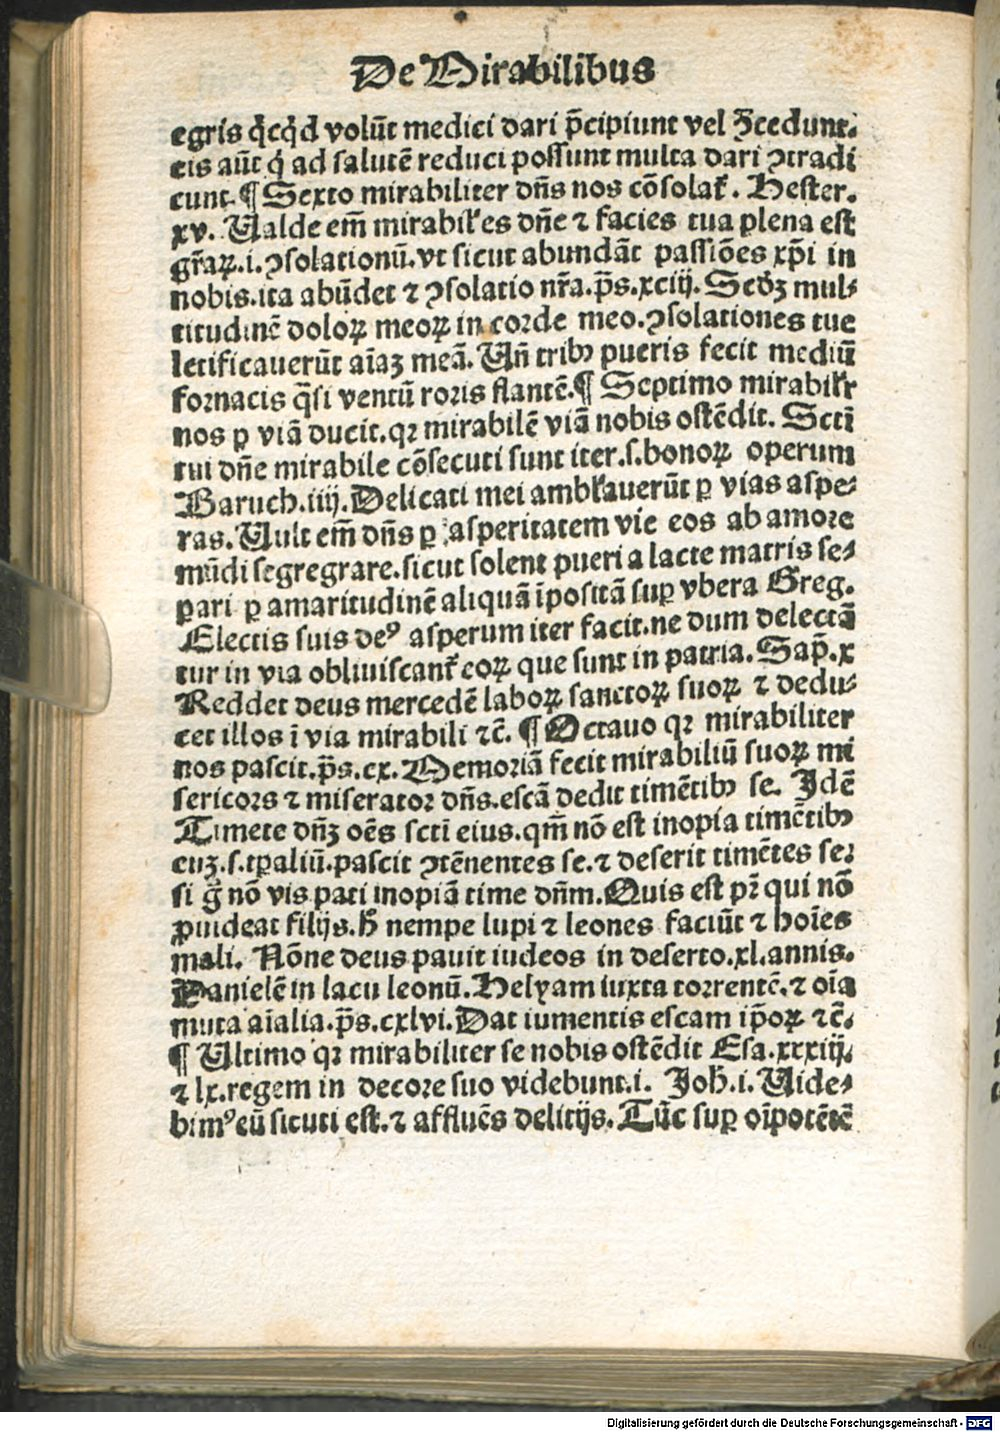 De Mirabilibus
egris q̇cq̇d volūt medici dari p̄cipiunt vel ꝯcedunt.
eis aūt q̇ ad salutē reduci possunt multa dari ꝯtradi
cunt. ¶ Sexto mirabiliter dn̄s nos cōsolat̄. Hester.
xv. Ualde em̄ mirabil'es dn̄e ⁊ facies tua plena est
gr̄aꝝ.i.ꝯsolationū.vt sicut abundāt passiōes xp̄i in
nobis.ita abūdet ⁊ ꝯsolatio nr̄a.p̄s.xciij. Scd'ꝫ mul⸗
titudinē doloꝝ meoꝝ in corde meo.ꝯsolationes tue
letificauerūt aīaꝫ meā. Un̄ tribꝰ pueris fecit mediū
fornacis q̄si ventū roris flantē.¶ Septimo mirabil'r
nos ꝑ viā ducit.qꝛ mirabilē viā nobis ostēdit. Scti
tui dn̄e mirabile cōsecuti sunt iter.s.bonoꝝ operum
Baruch.iiij.Delicati mei ambl'auerūt ꝑ vias aspe⸗
ras. Uult em̄ dn̄s ꝑ asperitatem vie eos ab amore
mūdi segregrare.sicut solent pueri a lacte matris se⸗
pari ꝑ amaritudinē aliquā īpositā suꝑ vbera Greg.
Electis suis deꝰ asperum iter facit.ne dum delectā
tur in via obliuiscant̄ eoꝝ que sunt in patria. Sap̄.x
Reddet deus mercedē laboꝝ sanctoꝝ suoꝝ ⁊ dedu⸗
cet illos ī via mirabili ⁊c̄. ¶ Octauo qꝛ mirabiliter
nos pascit.p̄s.cx. Memoriā fecit mirabiliū suoꝝ mi
sericors ⁊ miserator dn̄s.escā dedit timētibꝰ se. Idē
Timete dn̄ꝫ oēs sctī eius.qm̄ nō est inopia timētibꝰ
euꝫ.s.tꝑaliū.pascit ꝯtēnentes se.⁊ deserit timētes se?
si g̊ nō vis pati inopiā time dn̄m.Quis est pr̄ qui nō
ꝓuideat filijs.h̄ nempe lupi ⁊ leones faciūt ⁊ hoīes
mali. Nōne deus pauit iudeos in deserto.xl.annis.
Danielē in lacu leonū.Helyam iuxta torrentē.⁊ oīa
muta aīalia.p̄s.cxlvi.Dat iumentis escam ip̄oꝝ ⁊c̄.
¶ Ultimo qꝛ mirabiliter se nobis ostēdit Esa.xxxiij.
⁊ lx.regem in decore suo videbunt.i. Joh̄.i.Uide⸗
bimꝰ eū sicuti est.⁊ affluēs delitijs. Tūc suꝑ oīpotētē
Digitalisierung gefördert durch die Deutsche Forschungsgemeinschaft - DFG